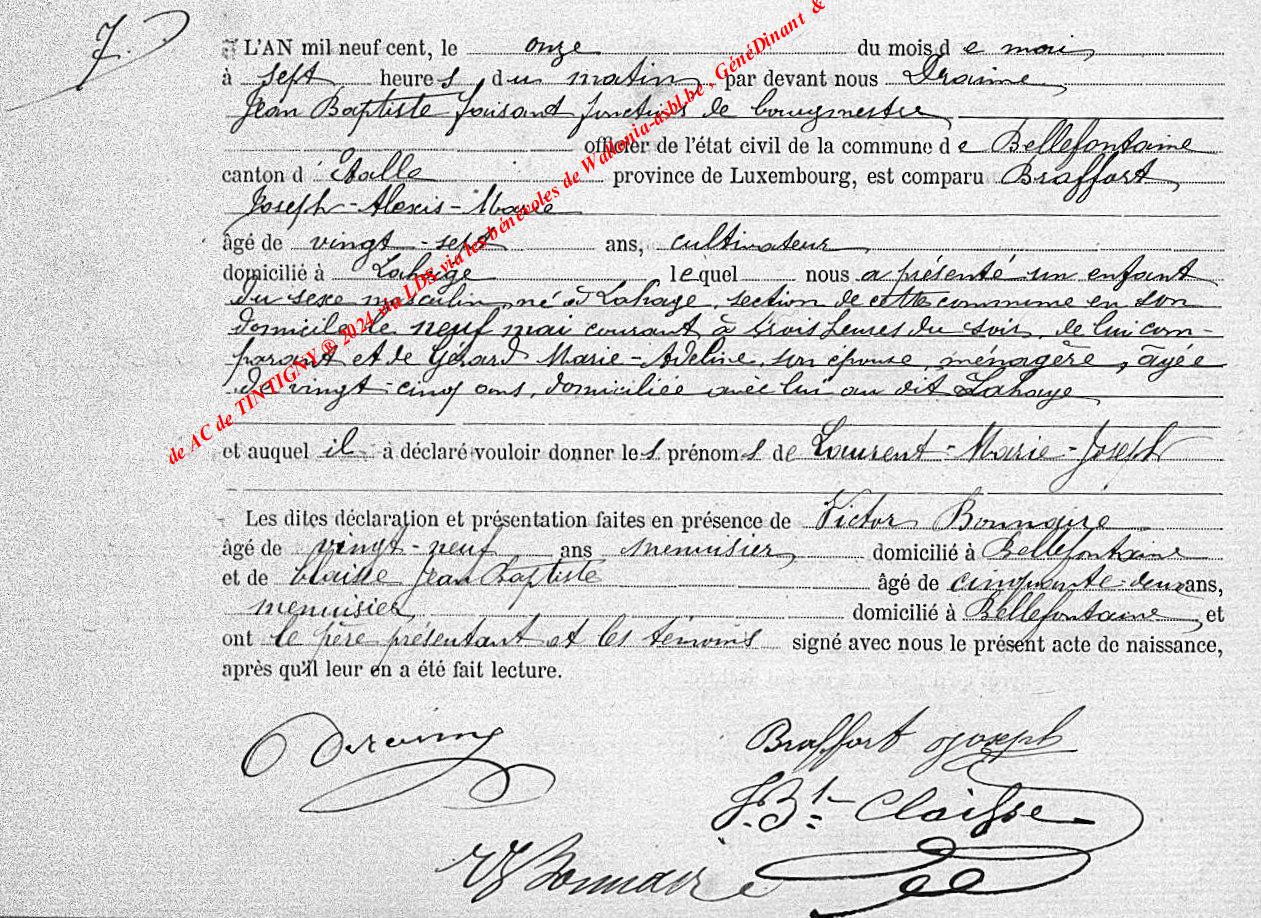 7.
L'AN mil neuf cent, le onze du mois d e mai,
à sept heure s, du matin, par devant nous Draime,
Jean Baptiste faisant fonctions de bourgmestre,
officier de l'état civil de la commune d e Bellefontaine
canton d' Etalle province de Luxembourg, est comparu Braffort,
Joseph-Alexis-Marie
âgé de vingt-sept ans, cultivateur
domicilié à Lahage lequel nous a présenté un enfant
du sexe masculin, né à Lahage, section de cette commune en son
domicile le neuf mai courant à trois heures du soir, de lui com-
parant et de Gérard Marie-Adeline, son épouse, ménagère, âgée
de vingt-cinq ans, domiciliée avec lui au dit Lahage,
et auquel il a déclaré vouloir donner le s prénom s de Laurent-Marie-Joseph
Les dites déclaration et présentation faites en présence de Victor Bonnaire
âgé de vingt-neuf ans menuisier, domicilié à Bellefontaine
et de Claisse Jean Baptiste âgé de cinquante-deux ans,
menuisier domicilié à Bellefontaine, et
ont le père présentant et les témoins signé avec nous le présent acte de naissance,
après qu'il leur en a été fait lecture.
Draime
Braffort Joseph
J. Bte Claisse
Bonnaire
de AC de TINTIGNY ® 2024 via LDS via les bénévoles de Wallonia-asbl.be, GénéDinant &